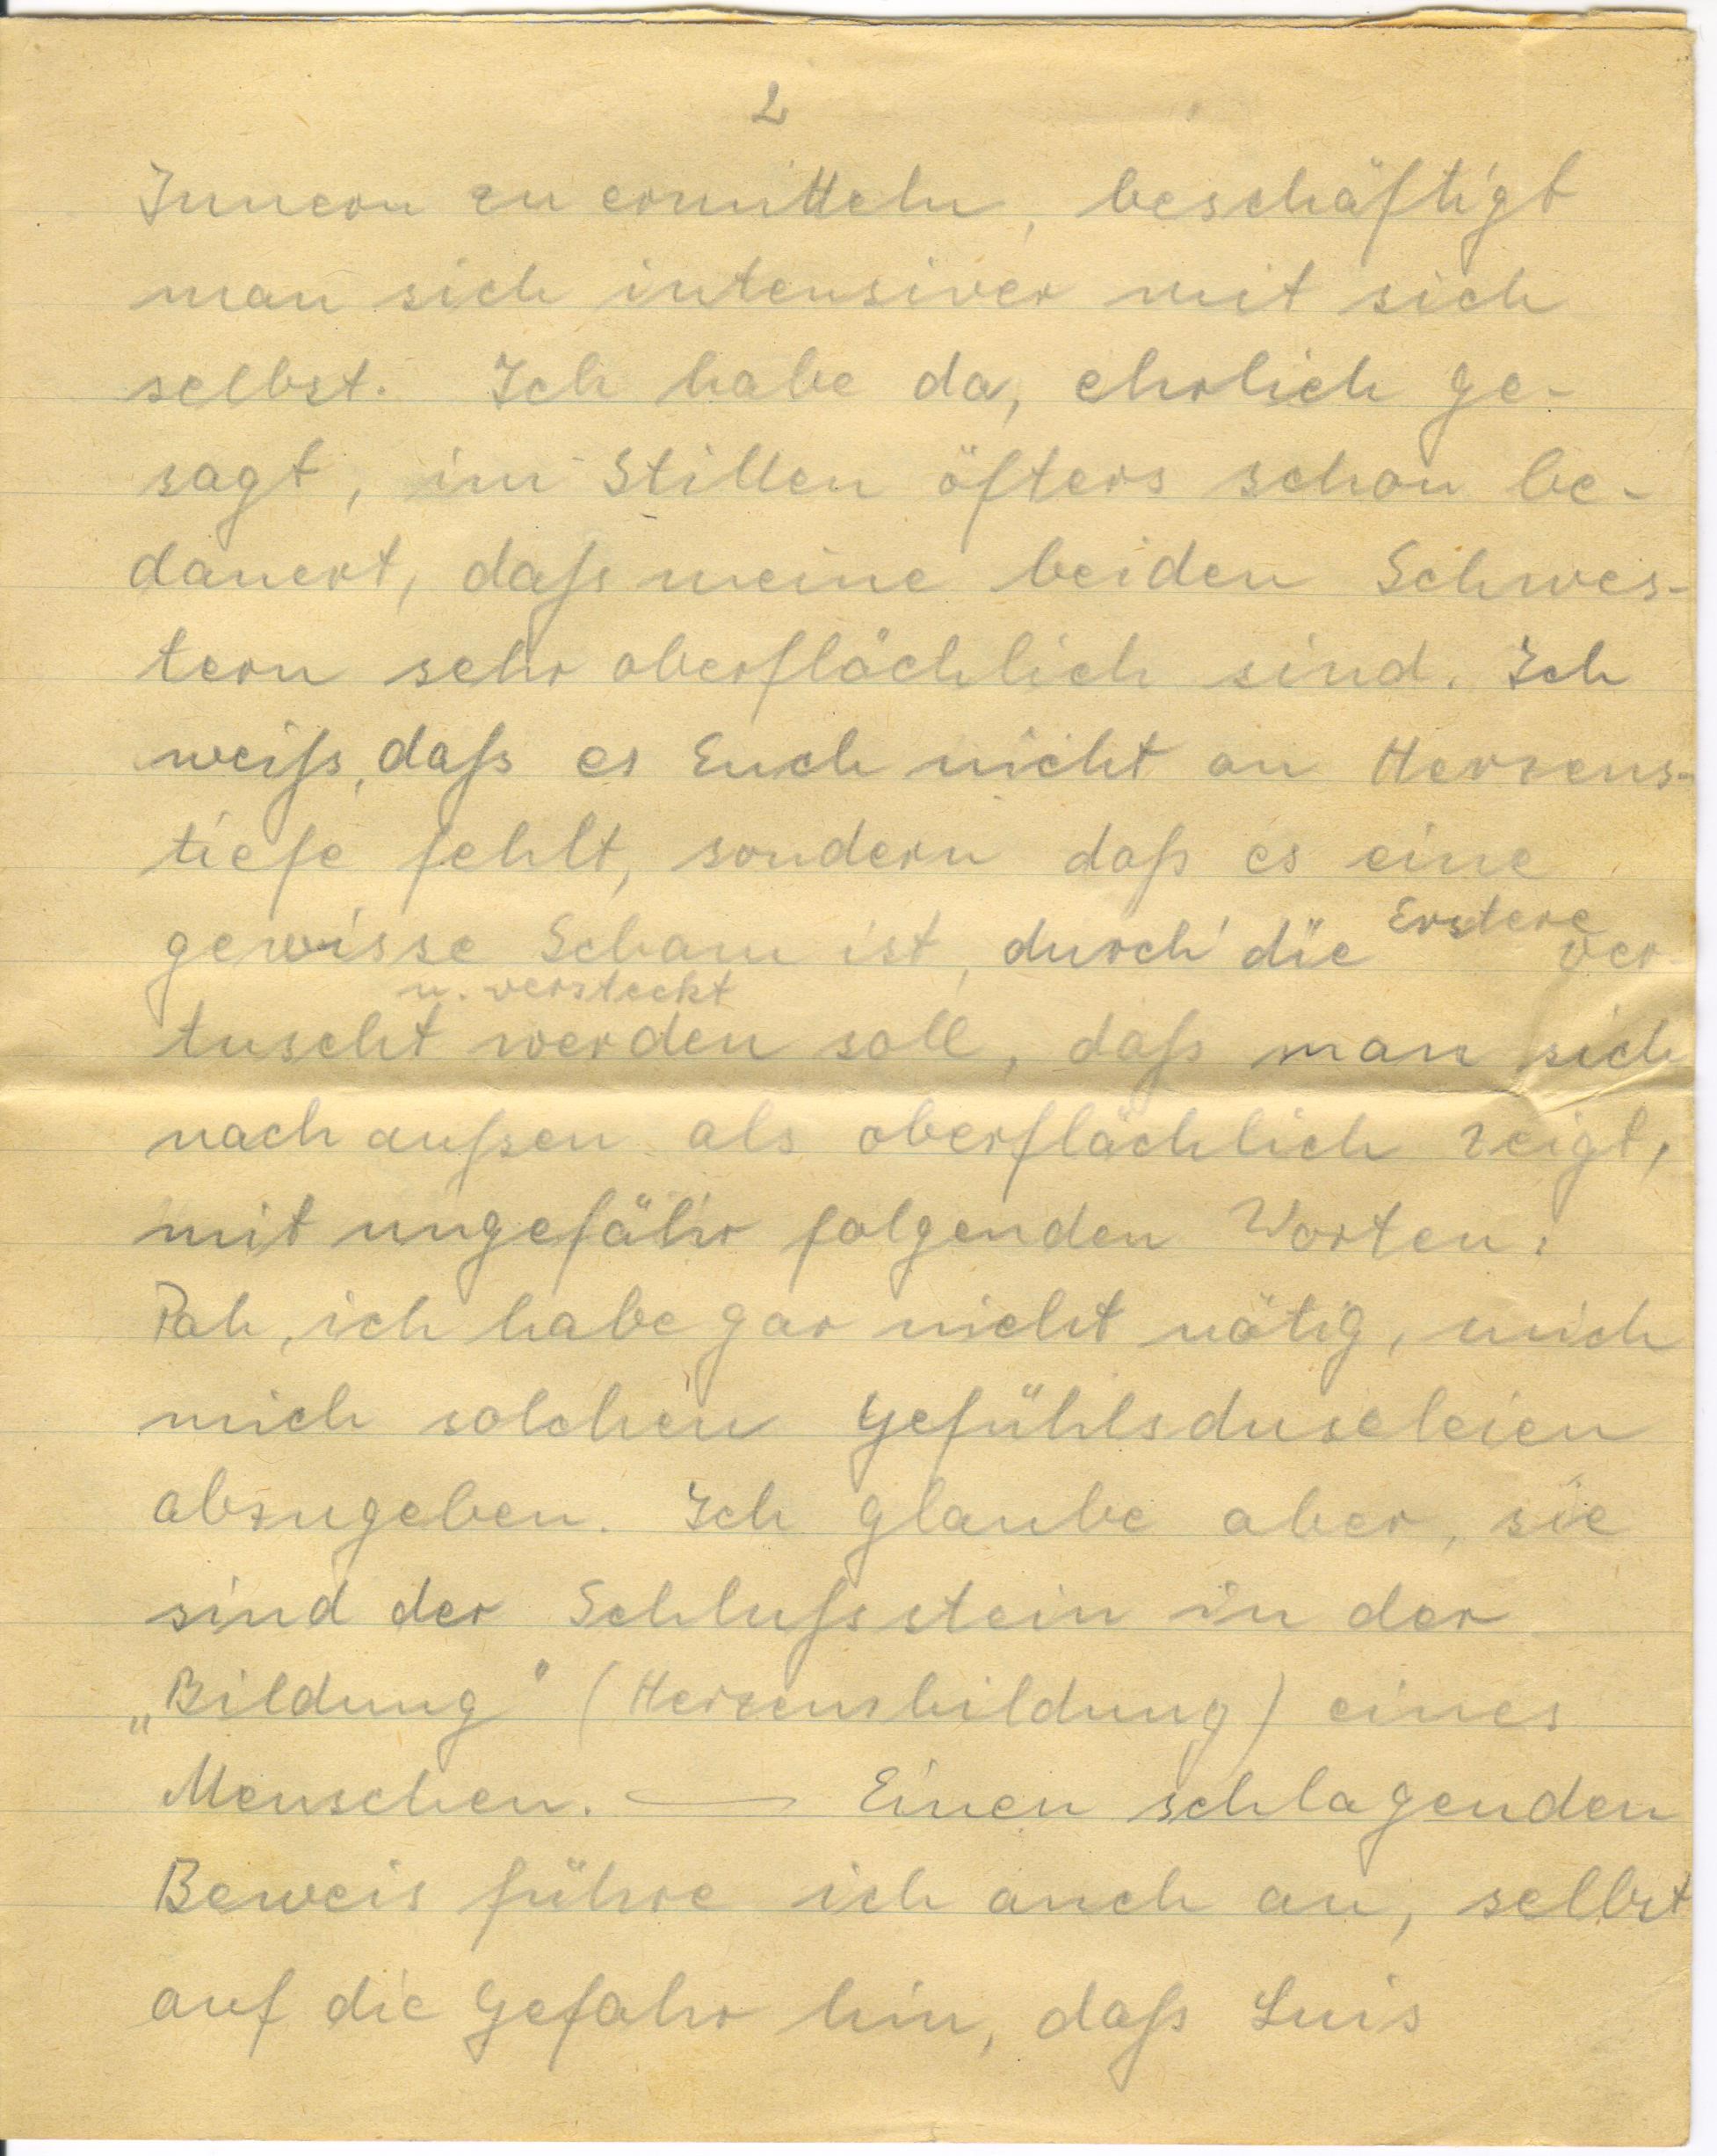 2
Innern zu ermitteln, beschäftigt
man sich intensiver mit sich
selbst. Ich habe da, ehrlich ge-
sagt, im Stillen öfters schon be-
dauert, daß meine beiden Schwes-
tern sehr oberflächlich sind. Ich
weiß, daß es Euch nicht an Herzens-
tiefe fehlt, sondern daß es eine
gewisse Scham ist, durch die Erstere ver-
u. versteckt
tuscht werden soll, daß man sich
nach außen als oberflächlich zeigt,
mit ungefähr folgenden Worten:
Pah, ich habe gar nicht nötig, mich
mich solchen Gefühlsduseleien
abzugeben. Ich glaube aber, sie
sind der Schlußstein in der
„Bildung" (Herzensbildung) eines
Menschen. — Einen schlagenden
Beweis führe ich auch an, selbst
auf die Gefahr hin, daß Luis